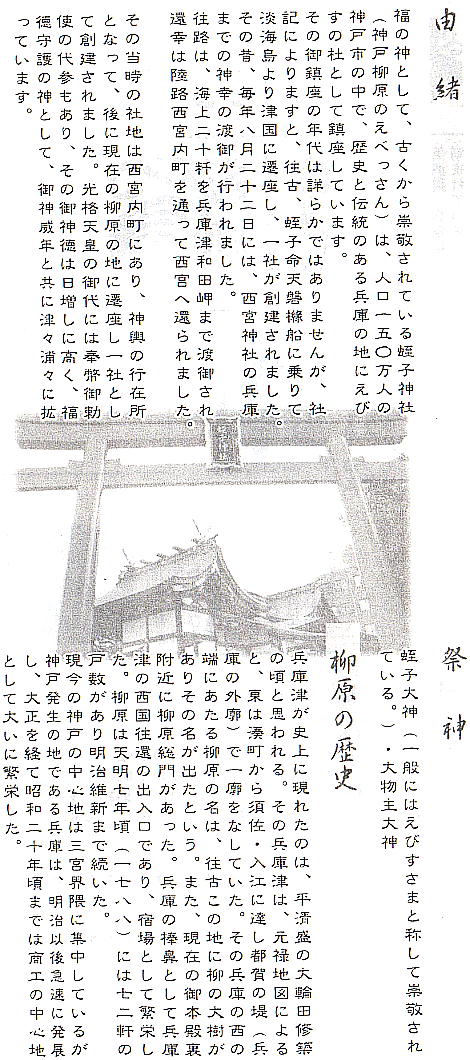 由緒
福の神として、古くから崇敬されている蛭子神社
（神戸柳原のえべっさん）は、人口一五〇万人の
神戸市の中で、歴史と伝統のある兵庫の地にえび
すの社として鎮座しています。
その御鎮座の年代は詳らかではありませんが、社
記によりますと、往古、蛭子命天磐櫲船に乗りて
淡海島より津国に遷座し、一社が創建されました。
その昔、毎年八月二十二日には、西宮神社の兵庫
までの神幸の渡御が行われました。
往路は、海上二十粁を兵庫津和田岬まで渡御され
還幸は陸路西宮内町を通って西宮へ還られました。
その当時の社地は西宮内町にあり、神輿の行在所
となって、後に現在の柳原の地に遷座し一社とし
て創建されました。光格天皇の御代には奉幣御勅
使の代参もあり、その御神徳は日増しに高く、福
徳守護の神として、御神威年と共に津々浦々に拡
っています。
祭神
蛭子大神（一般にはえびすさまと称して崇敬され
ている。）・大物主大神
柳原の歴史
兵庫津が史上に現れたのは、平清盛の大輪田修築
の頃と思われる。その兵庫津は、元禄地図による
と、東は湊町から須佐・入江に達し都賀の堤（兵
庫の外廓）で一廓をなしていた。その兵庫の西の
端にあたる柳原の名は、往古この地に柳の大樹が
ありその名が出たという。また、現在の御本殿裏
附近に柳原総門があった。兵庫の棒鼻として兵庫
津の西国往還の出入口であり、宿場として繁栄し
た。柳原は天明七年頃（一七八八）には七二軒の
戸数があり明治維新まで続いた。
現今の神戸の中心地は三宮界隈に集中しているが
神戸発生の地である兵庫は、明治以後急速に発展
し、大正を経て昭和二十年頃までは商工の中心地
として大いに繁栄した。